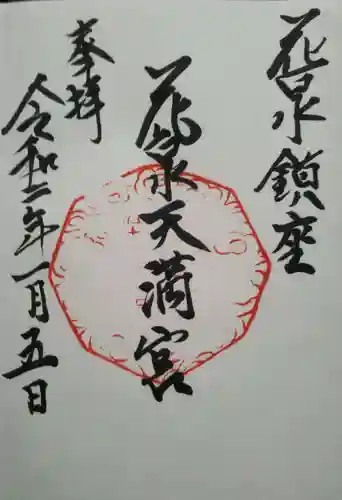 花泉鎖座
花泉天満宮
奉拝
令和二年一月五日